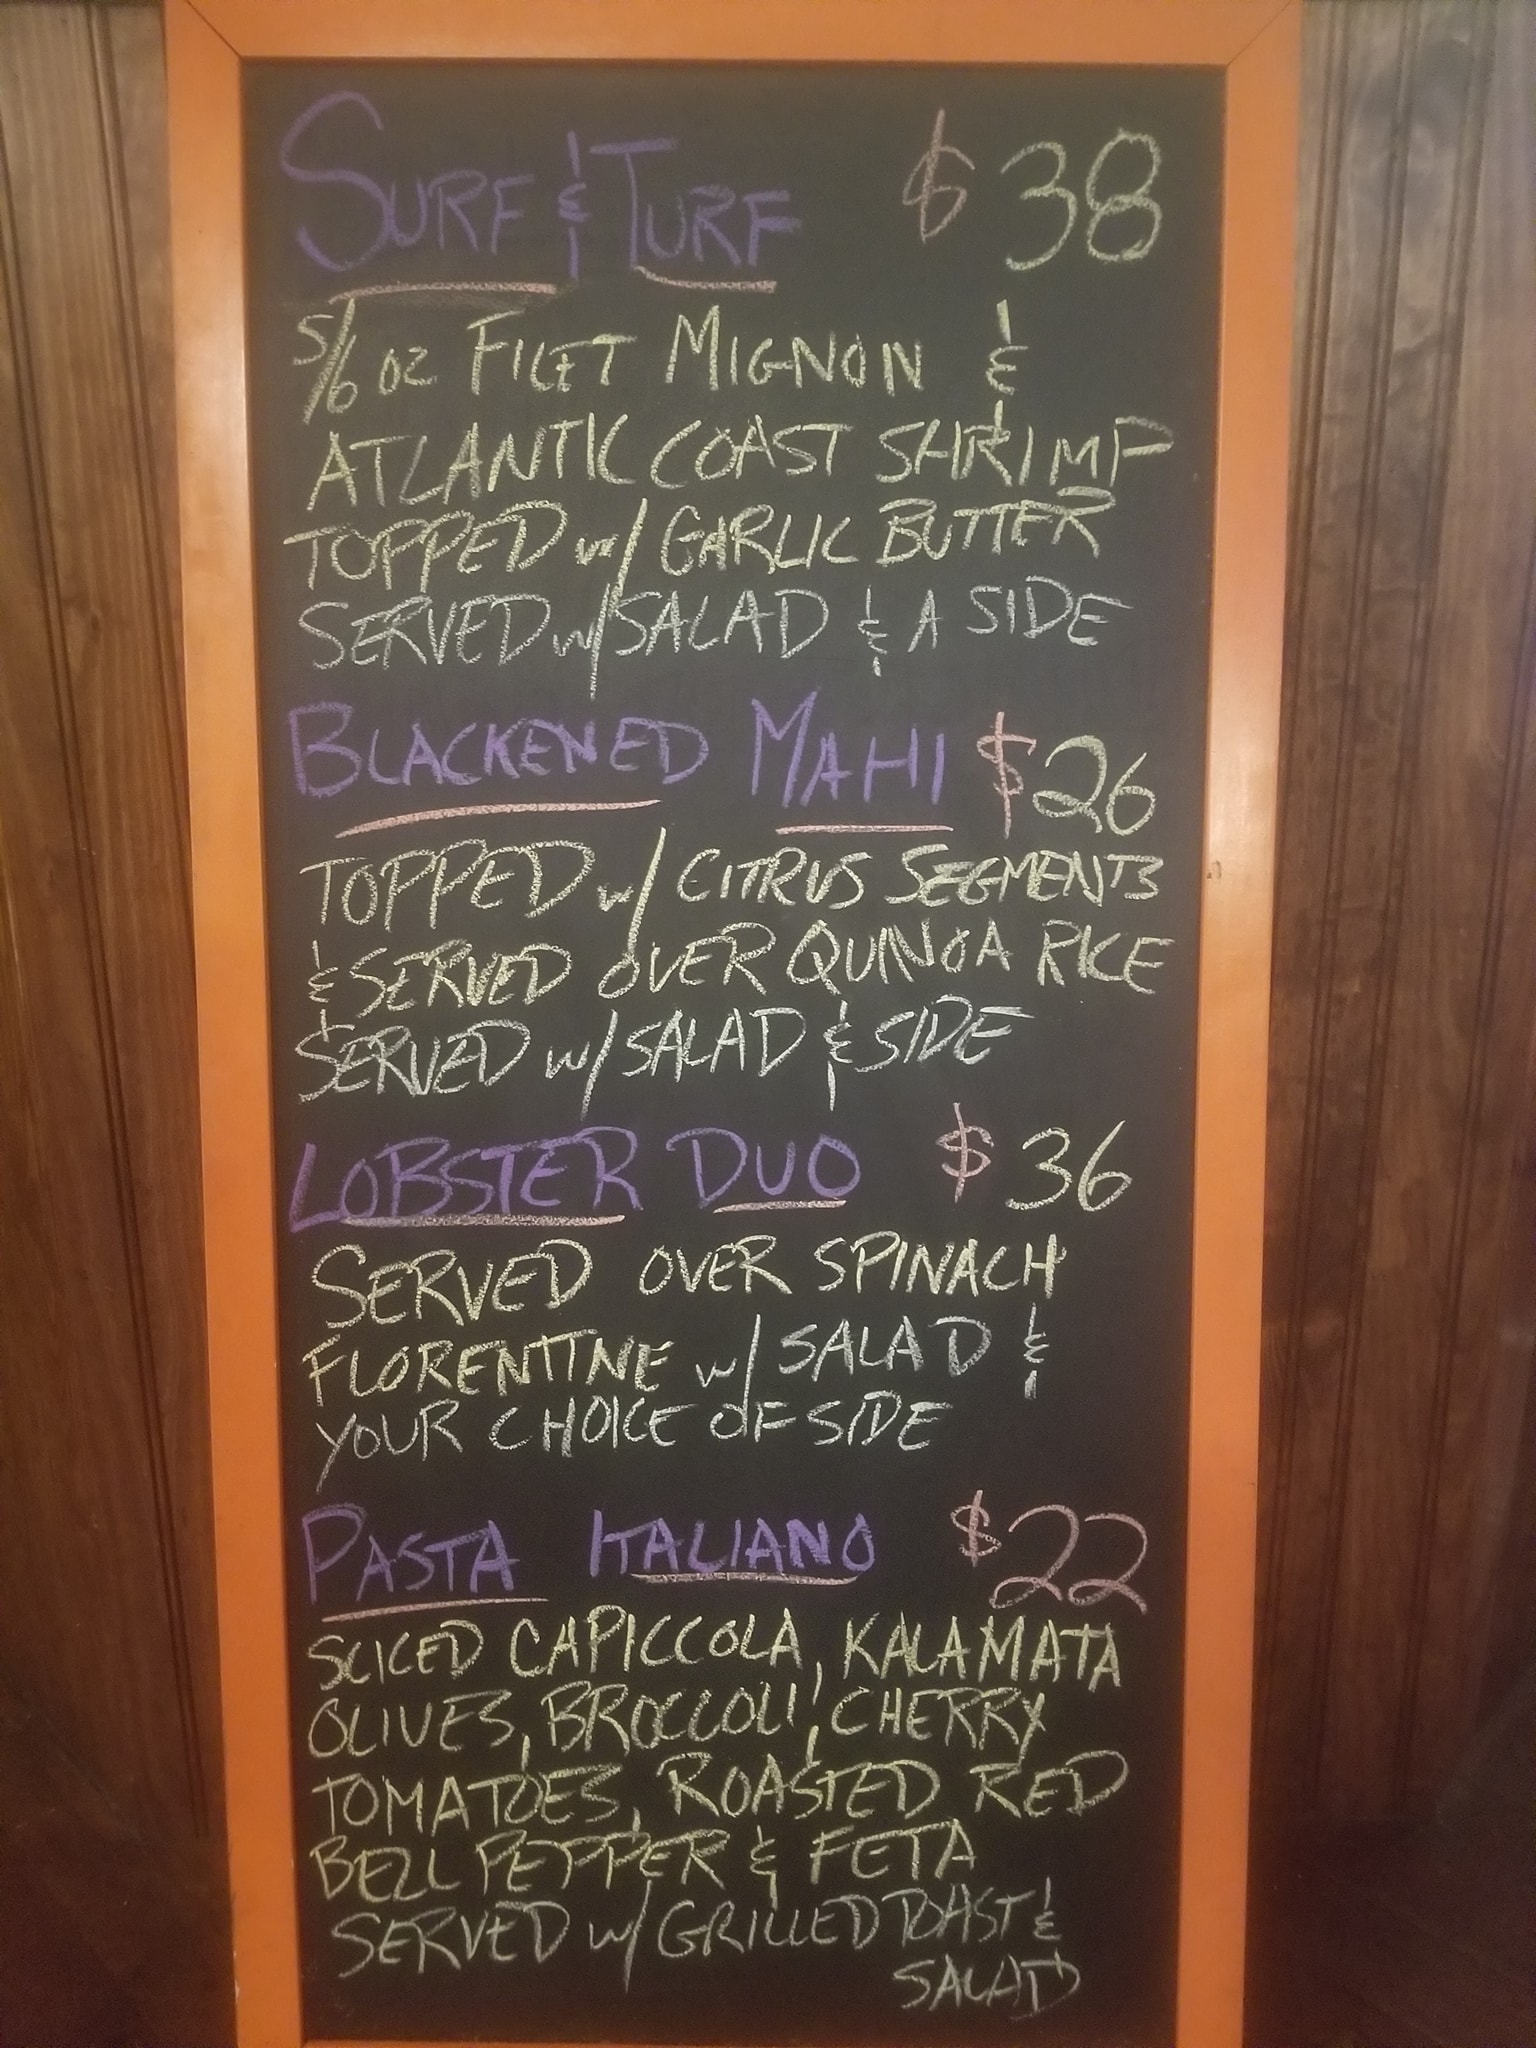 SURF & TURF $38
5/6 OZ FILET MIGNON &
ATLANTIC COAST SHRIMP
TOPPED w/ GARLIC BUTTER
SERVED w/ SALAD & A SIDE
BLACKENED MAHI $26
TOPPED w/ CITRUS SEGMENTS
& SERVED OVER QUINOA RICE
SERVED w/ SALAD & SIDE
LOBSTER DUO $36
SERVED OVER SPINACH
FLORENTINE w/ SALAD &
YOUR CHOICE OF SIDE
PASTA ITALIANO $22
SLICED CAPICCOLA, KALAMATA
OLIVES, BROCCOLI, CHERRY
TOMATOES, ROASTED RED
BELL PEPPER & FETA
SERVED w/ GRILLED TOAST &
SALAD